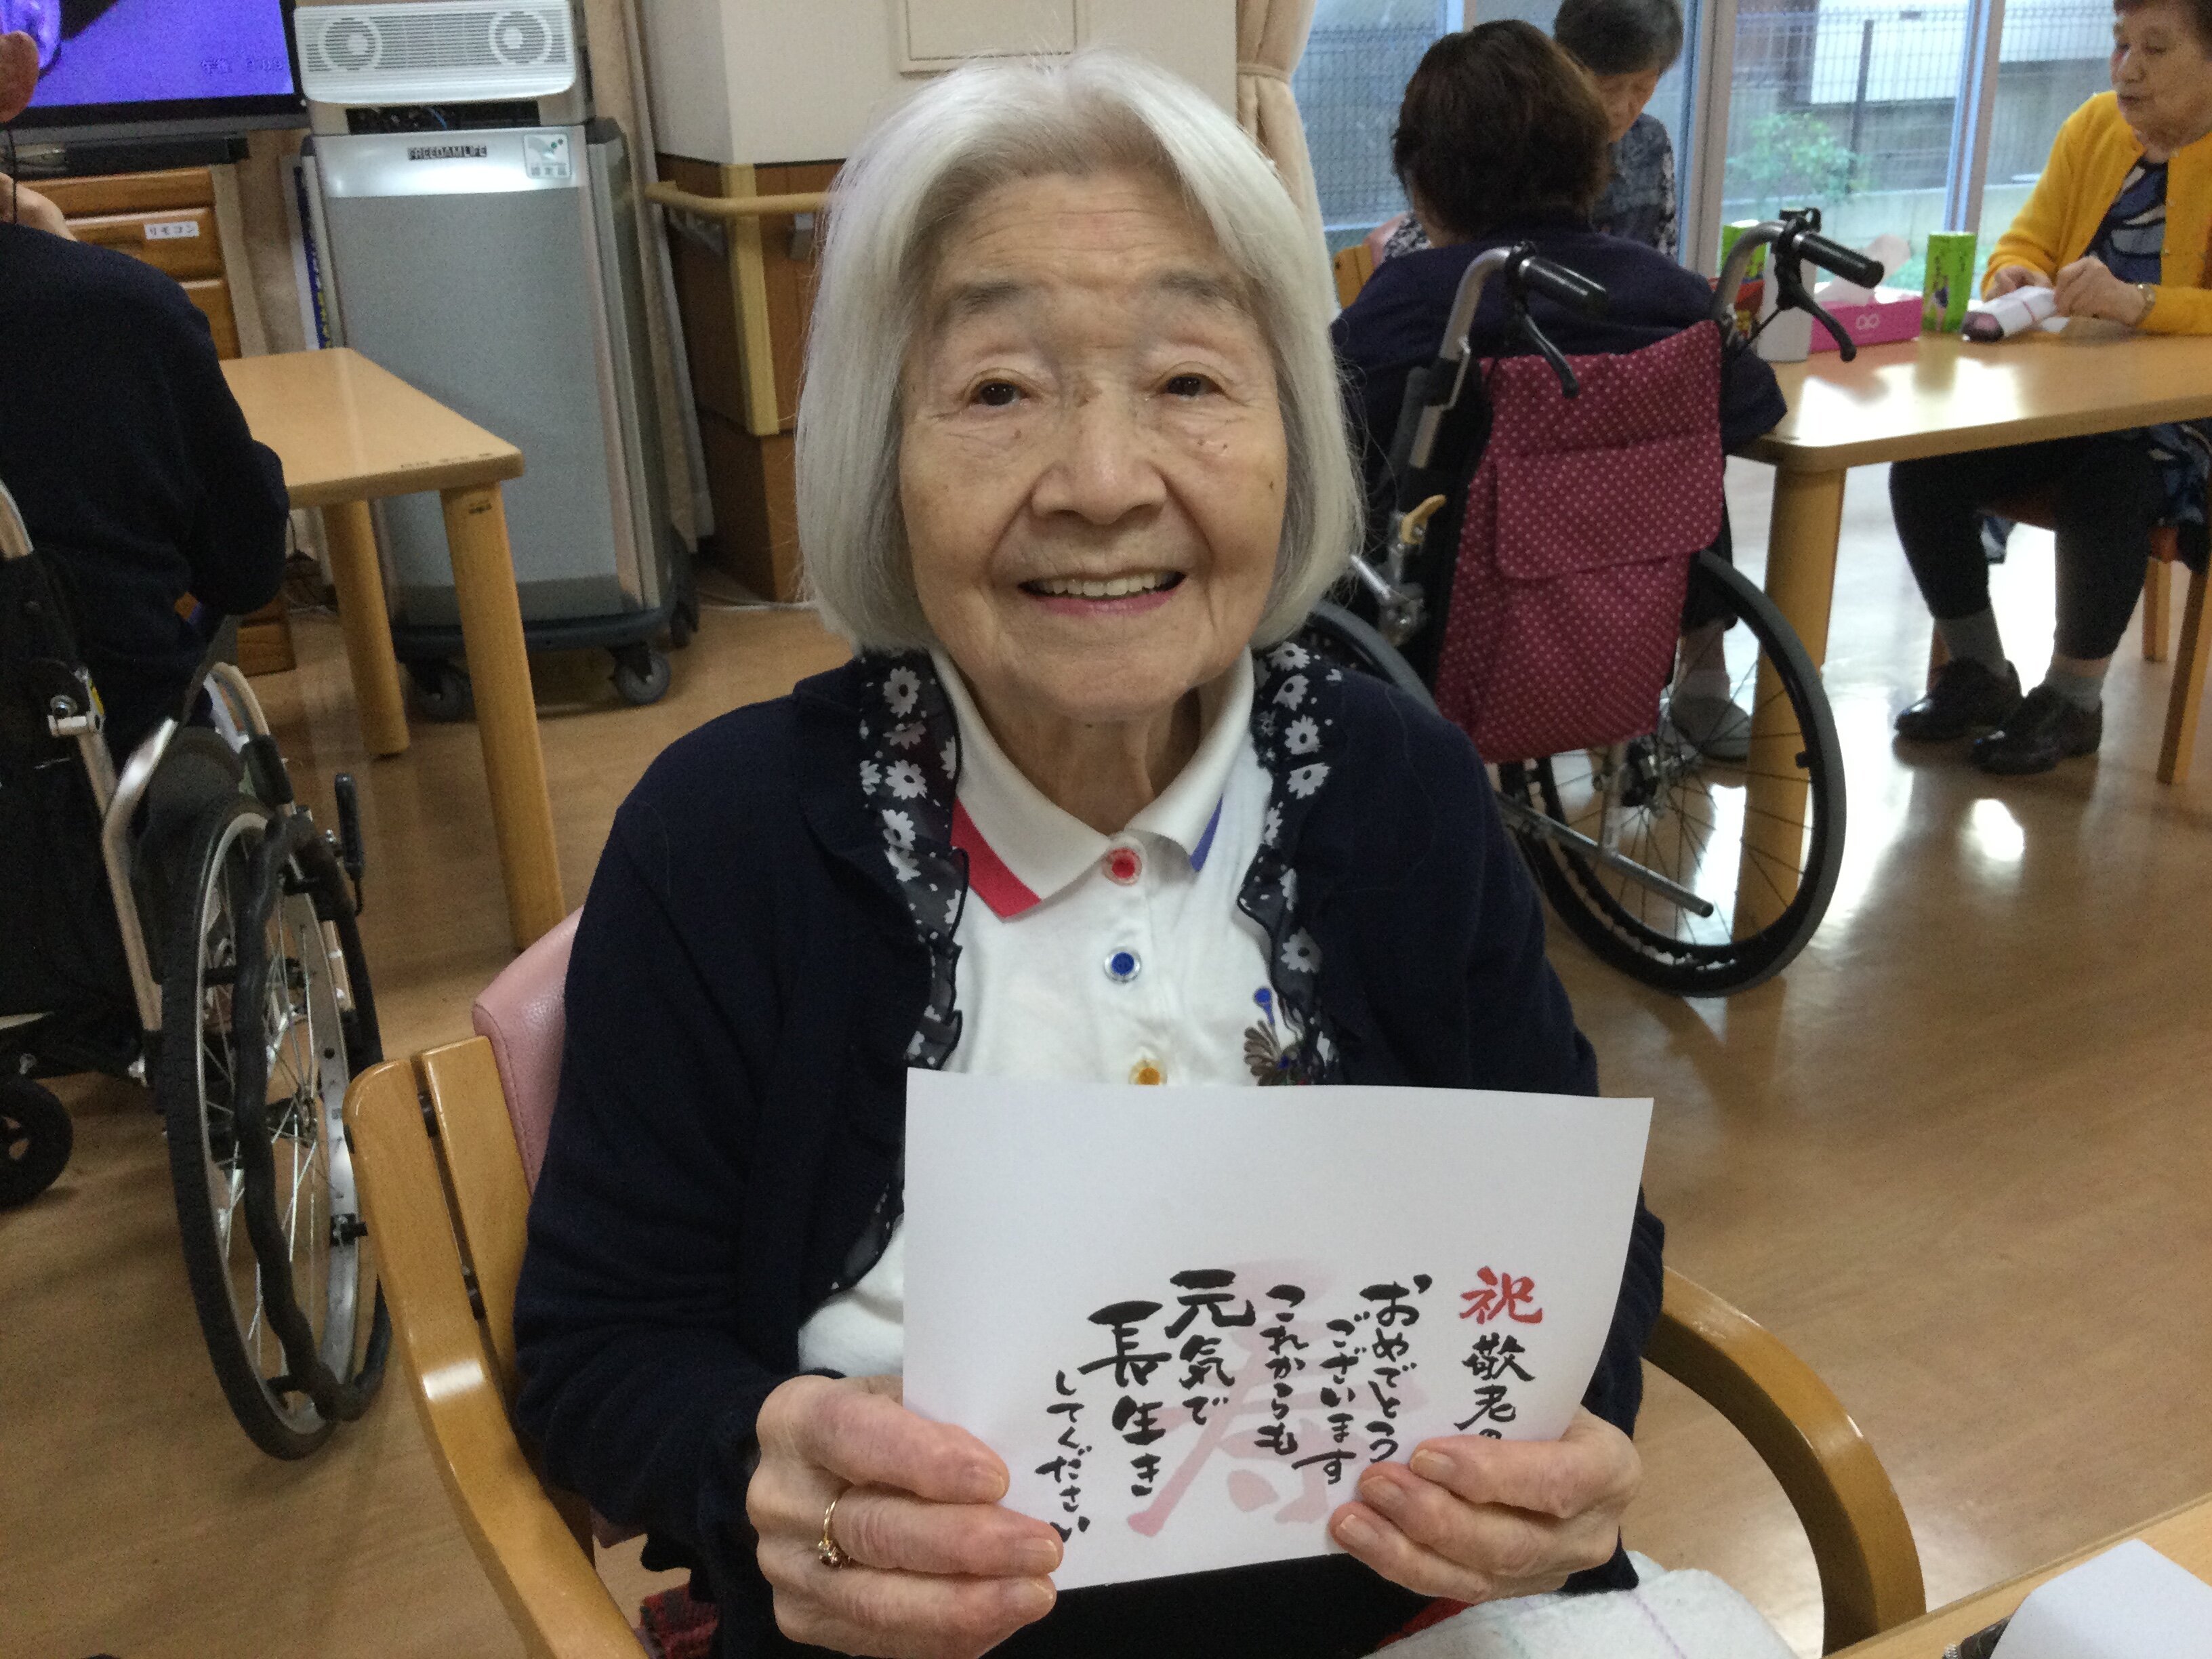 祝 敬老の
おめでとう
ございます
これからも
元気で
長生き
してください
寿
FREEDAM LIFE
リモコン